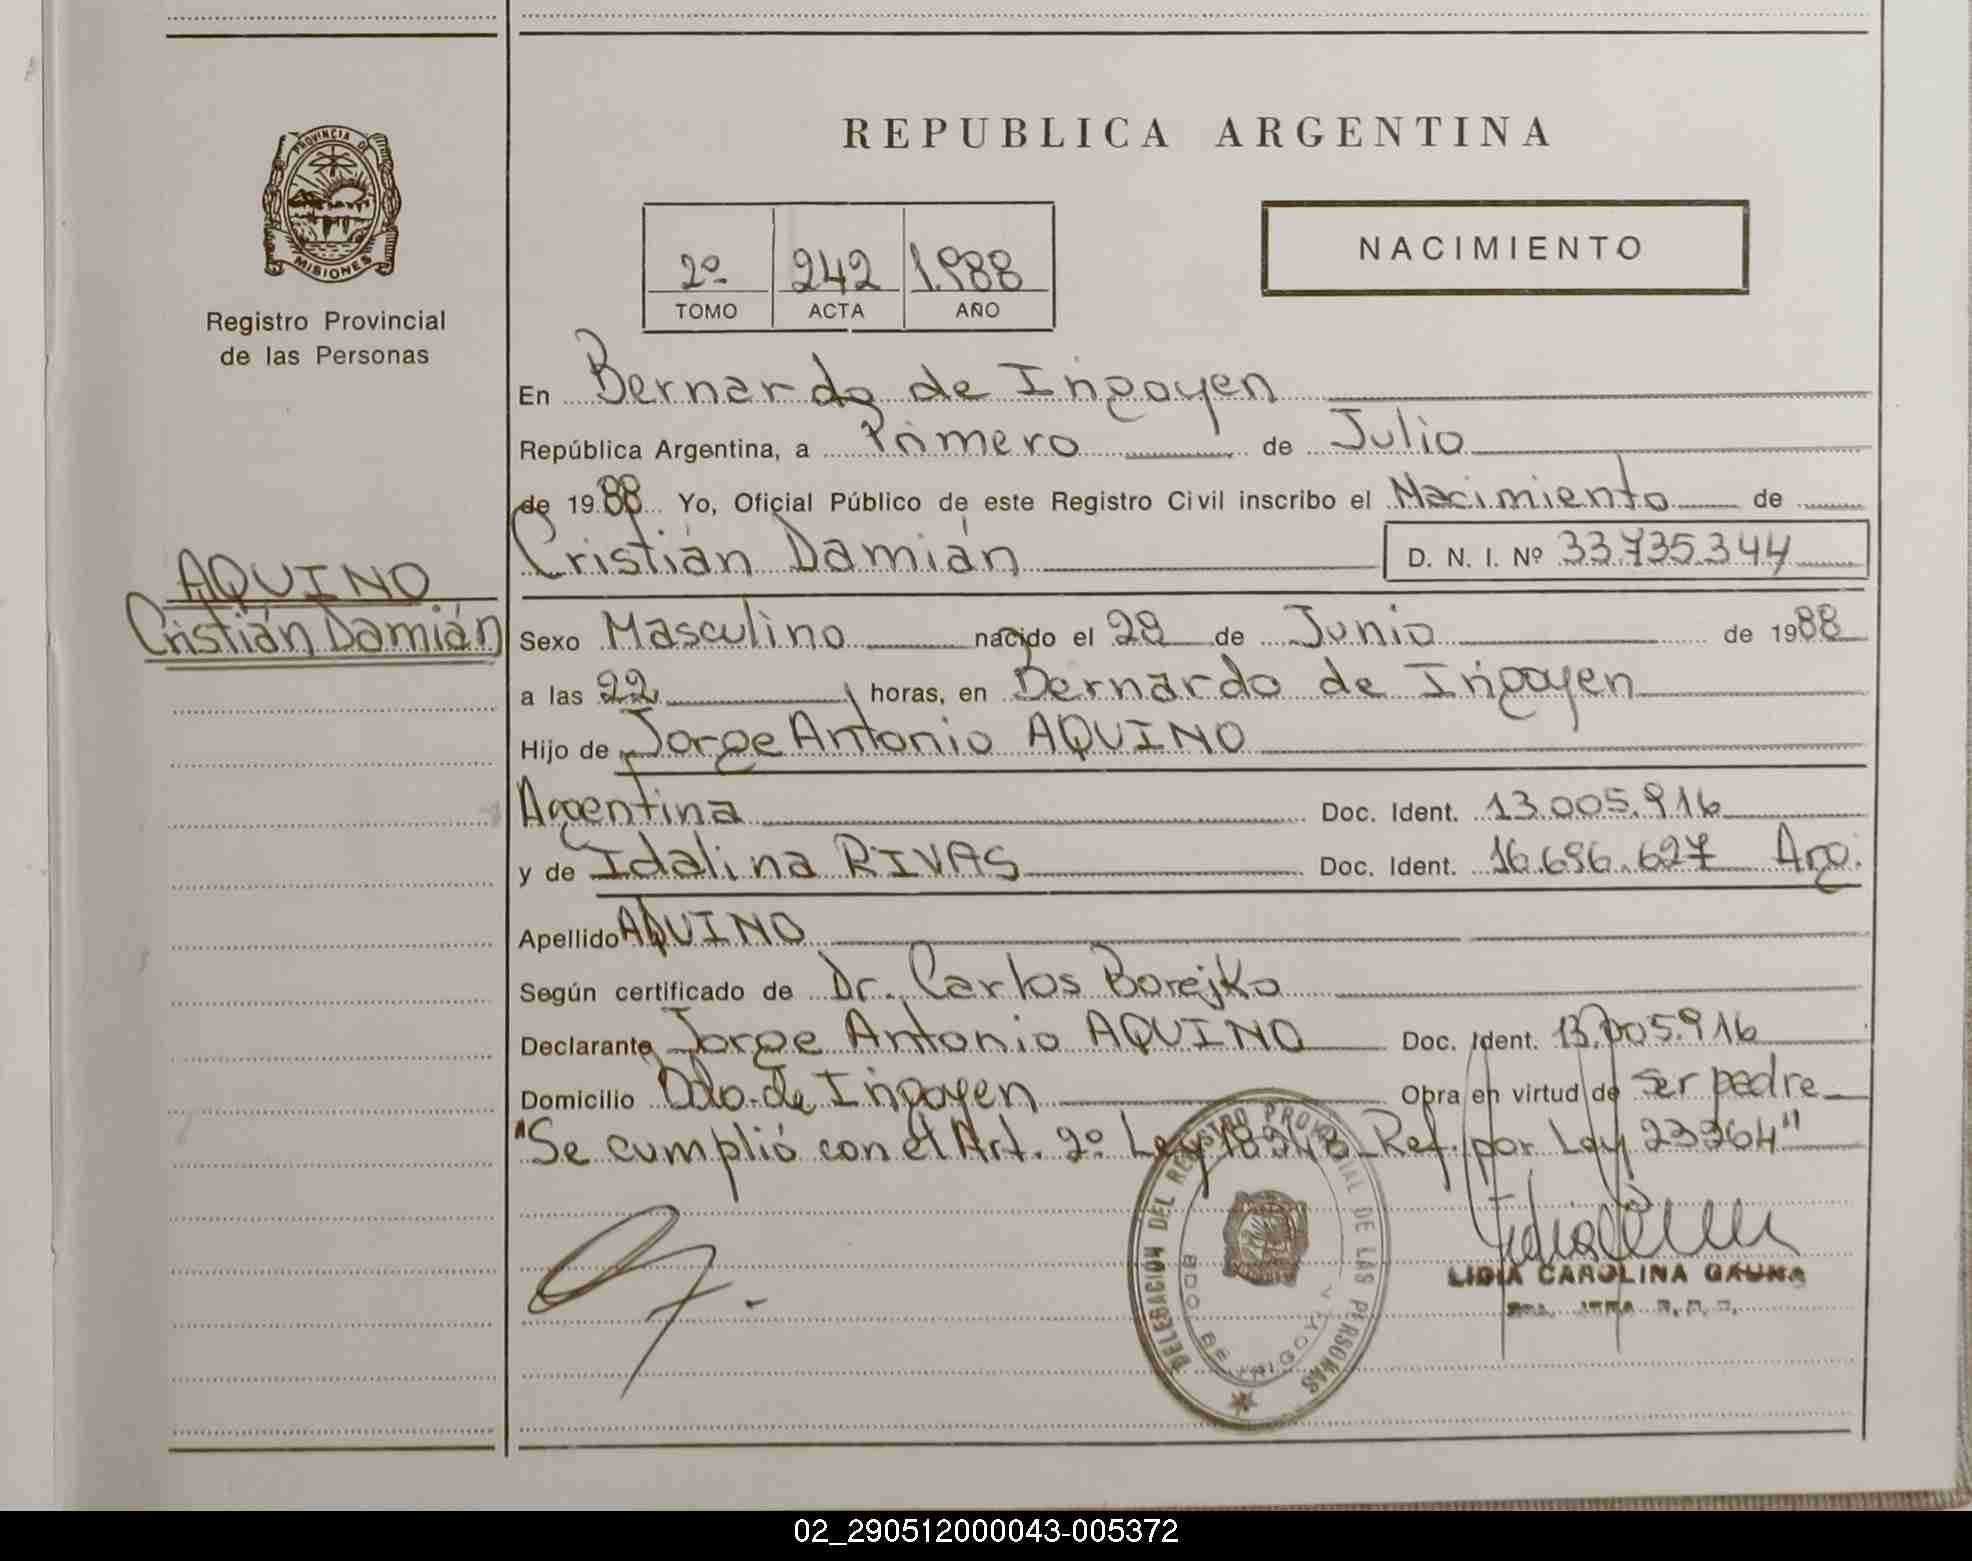 REPUBLICA ARGENTINA
PROVINCIA DE
MISIONES
Registro Provincial
de las Personas
NACIMIENTO
2º 242 1.988
TOMO ACTA AÑO
En Bernardo de Irigoyen
República Argentina, a Primero de Julio
de 1988 Yo, Oficial Público de este Registro Civil inscribo el Nacimiento de
Cristián Damián D. N. I. Nº 33.735.344
AQUINO
Cristián Damián
Sexo Masculino nacido el 28 de Junio de 1988
a las 22 horas, en Bernardo de Irigoyen
Hijo de Jorge Antonio AQUINO
Argentina Doc. Ident. 13.005.916
y de Idalina RIVAS Doc. Ident. 16.696.627 Arg.
Apellido AQUINO
Según certificado de Dr. Carlos Borejko
Declarante Jorge Antonio AQUINO Doc. Ident. 13.005.916
Domicilio Bdo. de Irigoyen Obra en virtud de ser padre
"Se cumplió con el Art. 2º Ley 18248 Ref. por Ley 23264"
DELEGACIÓN DEL REGISTRO PROVINCIAL DE LAS PERSONAS
BDO. DE IRIGOYEN
LIDIA CAROLINA GAUNA
02_290512000043-005372